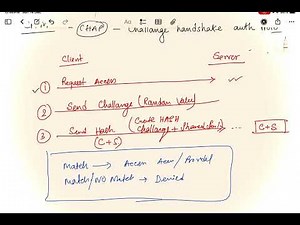 CHAP – Challange handshake auth
Client Server
① Request Access
② Send Challange (Random Value)
③ Send Hash (Create HASH
Challange + Shared
(C+S) C+S
Match → Access
Match/NO Match → Denied